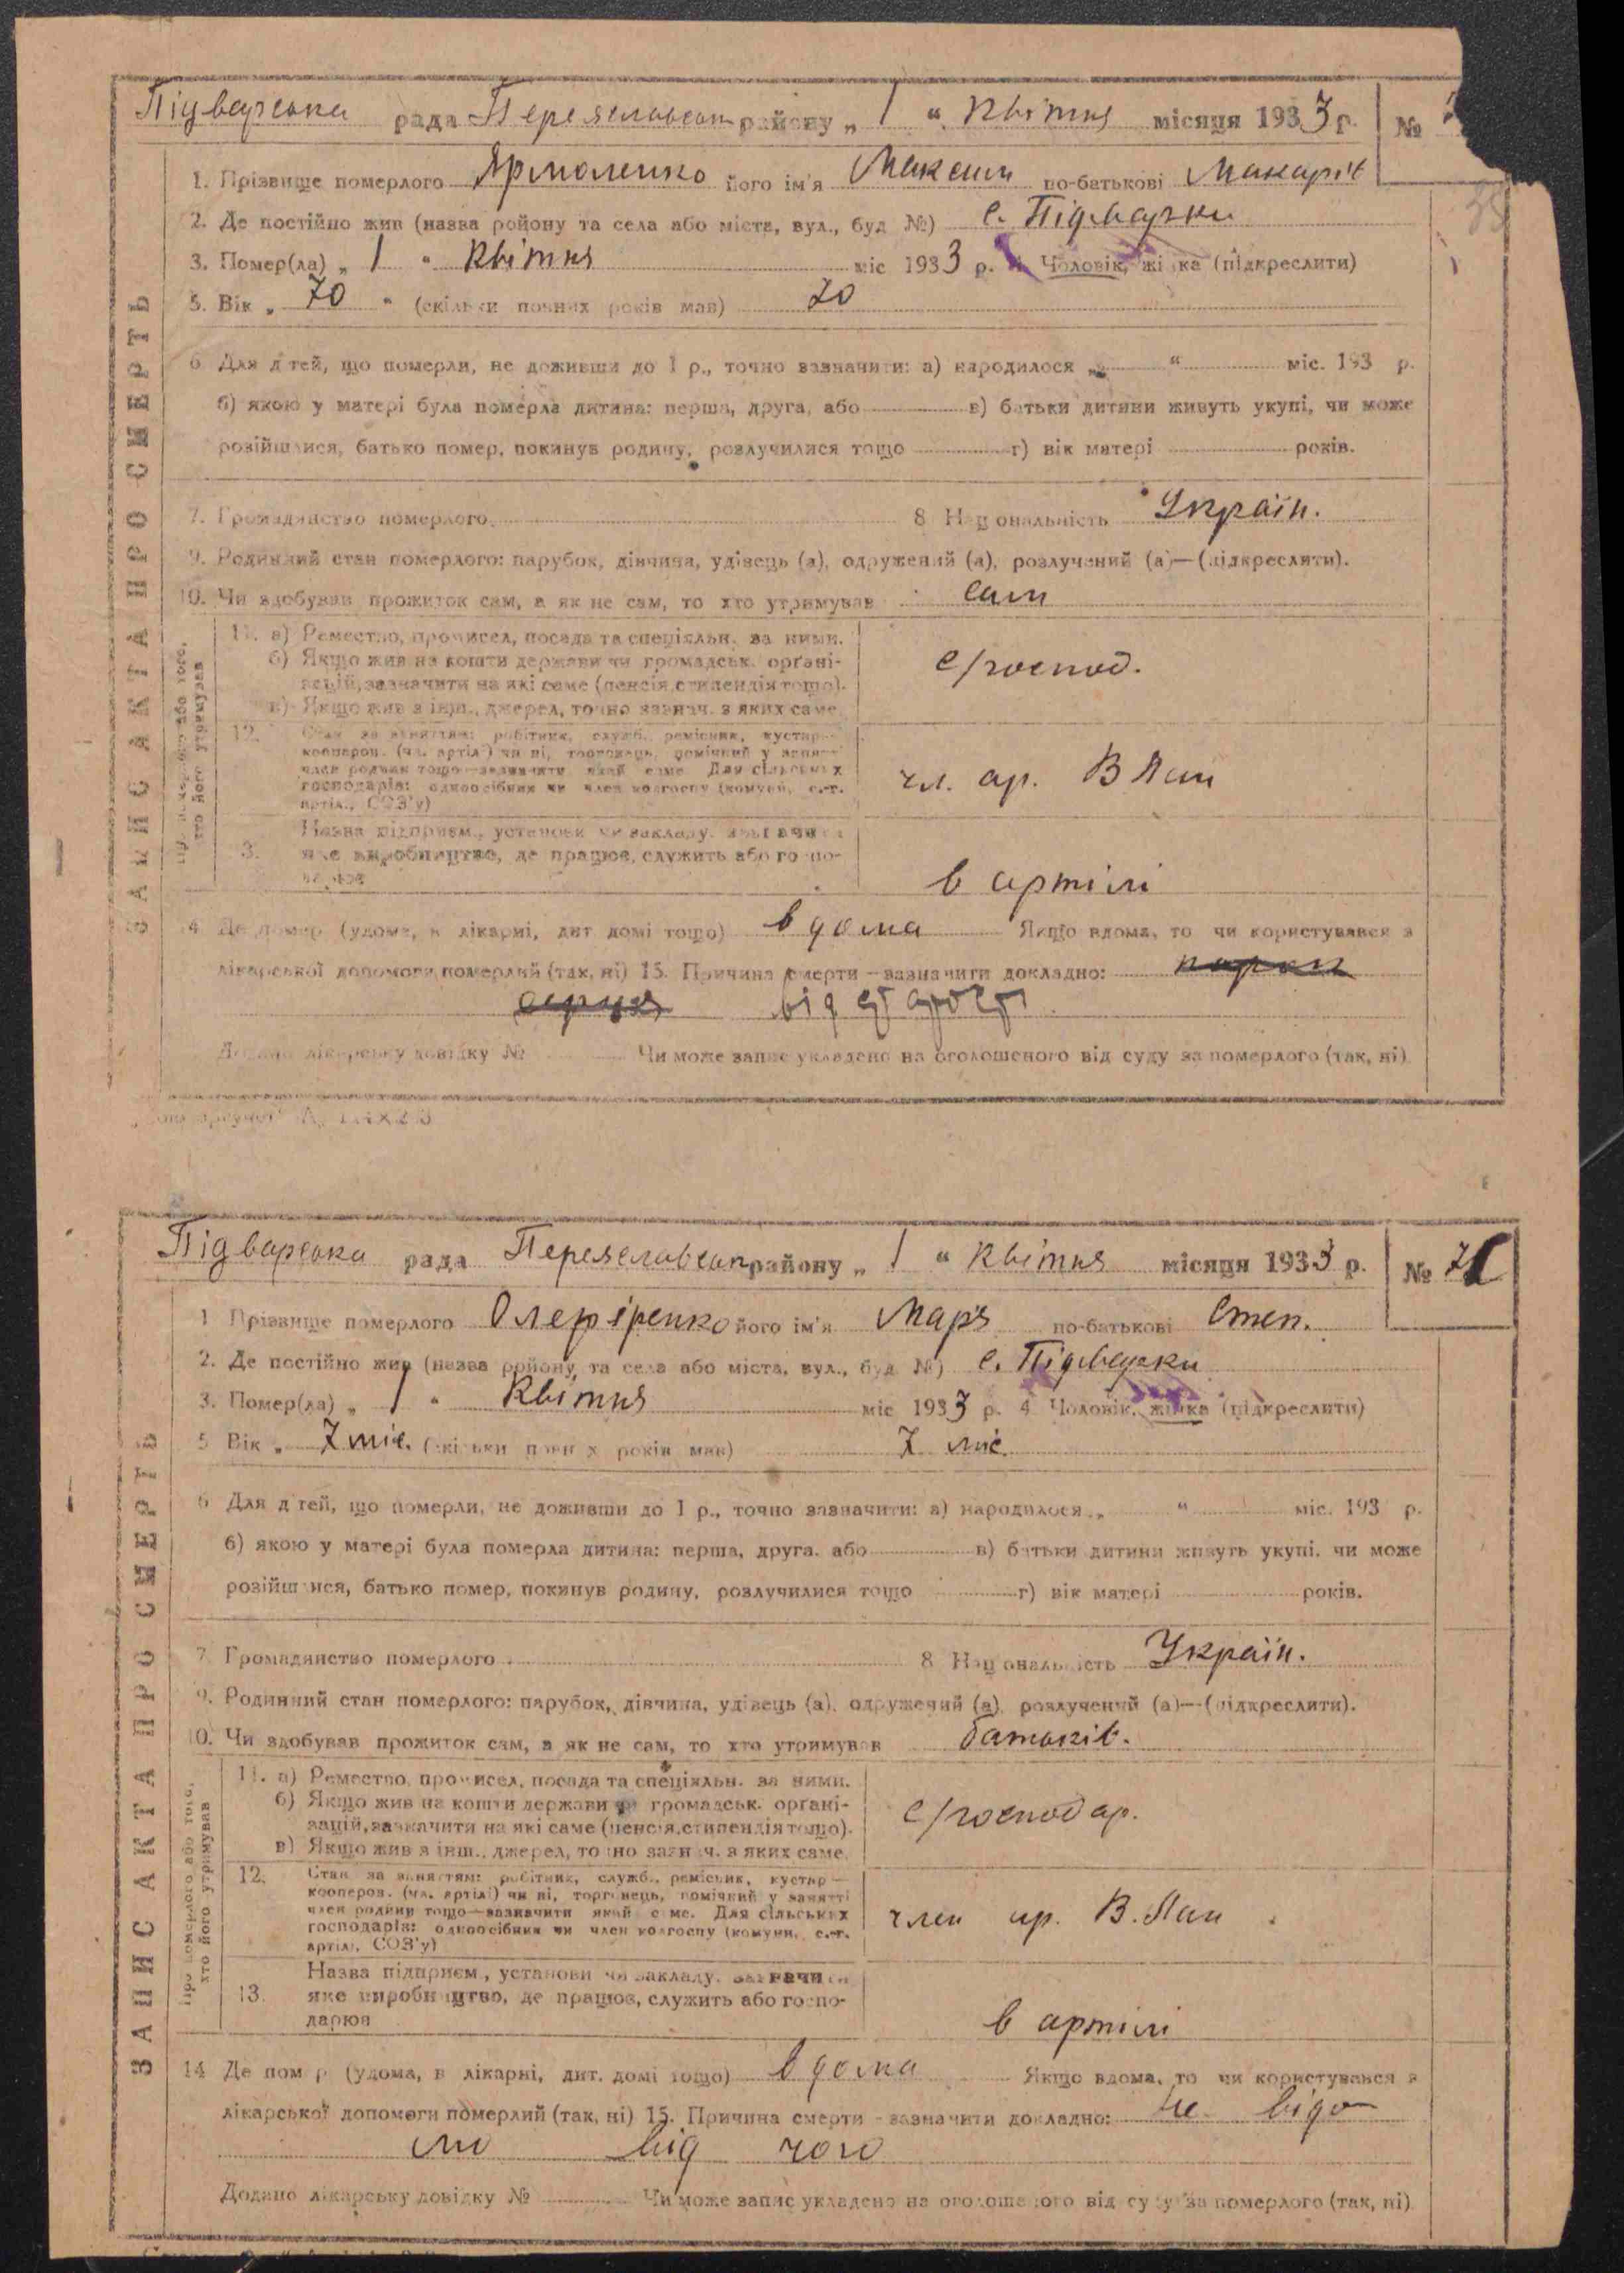 Підварська рада Переяславськ району „ 1 “ Квітня місяця 1933 р. №
1. Прізвище померлого Ярмоленко його ім'я Максим по-батькові Макарів
2. Де постійно жив (назва ройону та села або міста, вул., буд №) с. Підварки
3. Помер(ла) „ 1 “ Квітня міс 1933 р. 4 Чоловік, жінка (підкреслити)
5. Вік „ 70 “ (скільки повних років мав) 70
6 Для дітей, що померли, не доживши до 1 р., точно зазначити: а) народилося „ “ міс. 193 р.
б) якою у матері була померла дитина: перша, друга, або в) батьки дитини живуть укупі, чи може
розійшлися, батько помер, покинув родину, розлучилися тощо г) вік матері років.
7. Громадянство померлого 8 Національність Україн.
9. Родинний стан померлого: парубок, дівчина, удівець (а), одружений (а), розлучений (а)—(підкреслити).
10. Чи здобував прожиток сам, а як не сам, то хто утримував сам
ЗАПИС АКТА ПРО СМЕРТЬ
Про померлого або того, хто його утримував
11. а) Ремество, промисел, посада та спеціяльн. за ними.
б) Якщо жив на кошти держави чи громадськ. органі-
зацій, зазначити на які саме (пенсія, стипендія тощо).
в) Якщо жив з інш., джерел, точно зазнач. з яких саме.
с/господ.
12. Стан за заняттям: робітник, служб., ремісник, кустар—
кооперов. (чл. артілі) чи ні, торговець, помічний у занятті
член родини тощо—зазначити який саме. Для сільських
господарів: одноосібник чи член колгоспу (комуни, с.-г.
артілі, СОЗ'у)
чл. ар. В Лан
13. Назва підприєм., установи чи закладу, зазначити
яке виробництво, де працює, служить або госпо-
дарює
в артілі
14 Де помер (удома, в лікарні, дит домі тощо) вдома Якщо вдома, то чи користувався з
лікарської допомоги померлий (так, ні) 15. Причина смерти—зазначити докладно:
від старости
Додано лікарську довідку № Чи може запис укладено на оголошеного від суду за померлого (так, ні)
Підварська рада Переяславськ району „ 1 “ Квітня місяця 1933 р. №
1 Прізвище померлого його ім'я Мар'я по-батькові Степ.
2. Де постійно жив (назва ройону та села або міста, вул., буд №) с. Підварки
3. Помер(ла) „ 1 “ Квітня міс 1933 р. 4 Чоловік, жінка (підкреслити)
5 Вік „ 7 міс. (скільки повних років мав) 7 міс.
6 Для дітей, що померли, не доживши до 1 р., точно зазначити: а) народилося „ “ міс. 193 р.
б) якою у матері була померла дитина: перша, друга. або в) батьки дитини живуть укупі. чи може
розійшлися, батько помер, покинув родину, розлучилися тощо г) вік матері років.
7. Громадянство померлого 8 Національність Україн.
9. Родинний стан померлого: парубок, дівчина, удівець (а), одружений (а), розлучений (а)—(підкреслити).
10. Чи здобував прожиток сам, а як не сам, то хто утримував батьків.
ЗАПИС АКТА ПРО СМЕРТЬ
Про померлого або того, хто його утримував
11. а) Ремество, промисел, посада та спеціяльн. за ними.
б) Якщо жив на кошти держави чи громадськ. органі-
зацій, зазначити на які саме (пенсія, стипендія тощо).
в) Якщо жив з інш., джерел, точно зазнач. з яких саме.
с/господар.
12. Стан за заняттям: робітник, служб., ремісник, кустар—
кооперов. (чл. артілі) чи ні, торговець, помічний у занятті
член родини тощо—зазначити який саме. Для сільських
господарів: одноосібник чи член колгоспу (комуни, с.-г.
артілі, СОЗ'у)
член ар. В. Лан
13. Назва підприєм., установи чи закладу, зазначити
яке виробництво, де працює, служить або госпо-
дарює
в артілі
14 Де помер (удома, в лікарні, дит. домі тощо) вдома Якщо вдома, то чи користувався з
лікарської допомоги померлий (так, ні) 15. Причина смерти—зазначити докладно: не відо
мо від чого
Додано лікарську довідку № Чи може запис укладено на оголошеного від суду за померлого (так, ні)